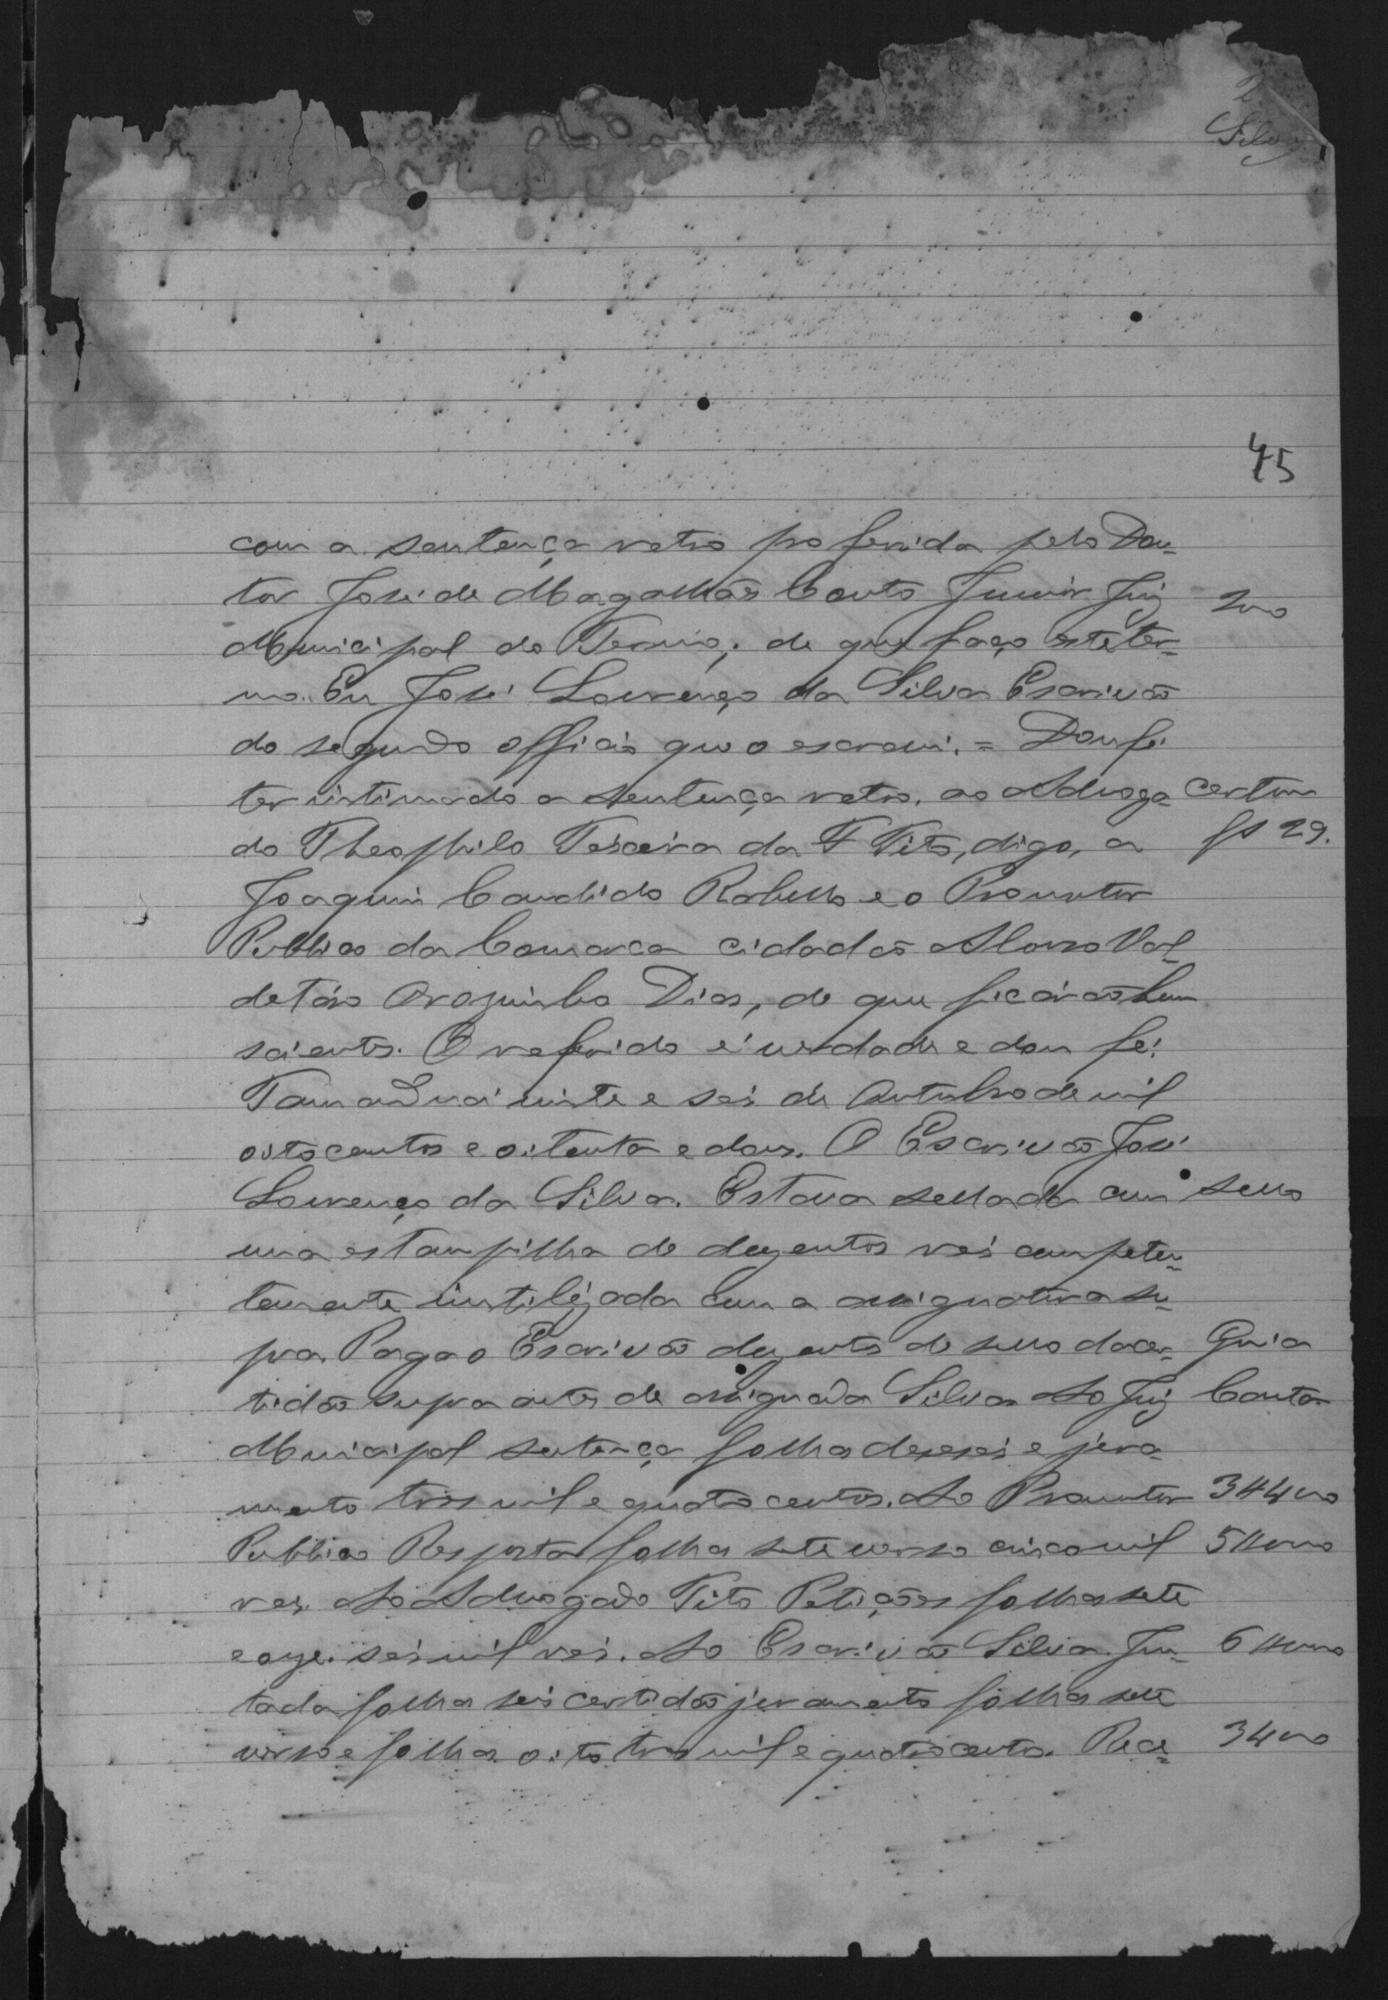 2
Silva
45
com a sentença retro proferida pelo Dou-
tor José de Magalhães Couto Junior Juiz
Municipal do Termo; de que faço este ter-
mo. Eu José Lourenço da Silva Escrivão
do segundo officio que o escrevi. = Dou fé
ter intimado a sentença retro, ao Advoga-
do Theophilo Teixeira da F Tito, digo, a
Joaquim Candido Rabello e o Promotor
Publico da Comarca cidadão Alonso Val-
detáro Dias, de que ficárão bem
scientes. O referido é verdade e dou fé.
Tamanduá vinte e seis de Outubro de mil
oitocentos e oitenta e dous. O Escrivão José
Lourenço da Silva. Estava sellada com
uma estampilha de duzentos reis competen-
temente inutilizada com a assignatura su-
pra. Paga o Escrivão duzentos de sello da cer-
tidão supra antes de assignada Silva. Ao Juiz
Municipal sentença folha deseseis e jura-
mento tres mil e quatrocentos. Ao Promotor
Publico Resposta folha sete verso cinco mil
reis. Ao Advogado Tito Petições folhas sete
e onze. seis mil reis. Ao Escrivão Silva. Jun-
tada folha seis certidão juramento folha sete
verso e folha oito tres mil e quatrocentos. Race-
200
certam
fs 29.
sello
Guia
Contas
3#400
5#000
6#000
3400